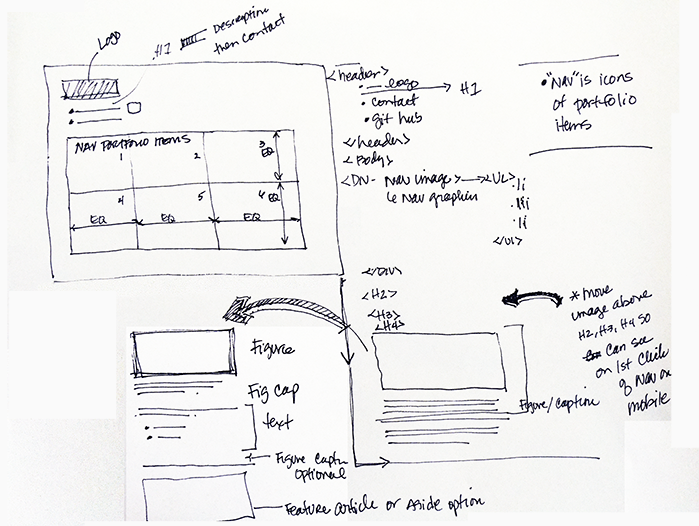 LOGO
H1 Description
then contact
<header>
logo → H1
• contact
• git hub
</header>
<Body>
<DIV- Nav image> → <UL>
6 Nav graphics
• li
• li
• li
</ul>
</DIV>
<H2>
<H3>
<H4>
• "Nav" is icons
of portfolio
items
NAV PORTFOLIO ITEMS
1 2 3 EQ
4 5 6 EQ
EQ EQ EQ
Figure
Fig Cap
text
Figure Captn
optional
Feature article or aside option
Figure/caption
* move
image above
H2, H3, H4 so
can see
on 1st click
of Nav on
mobile